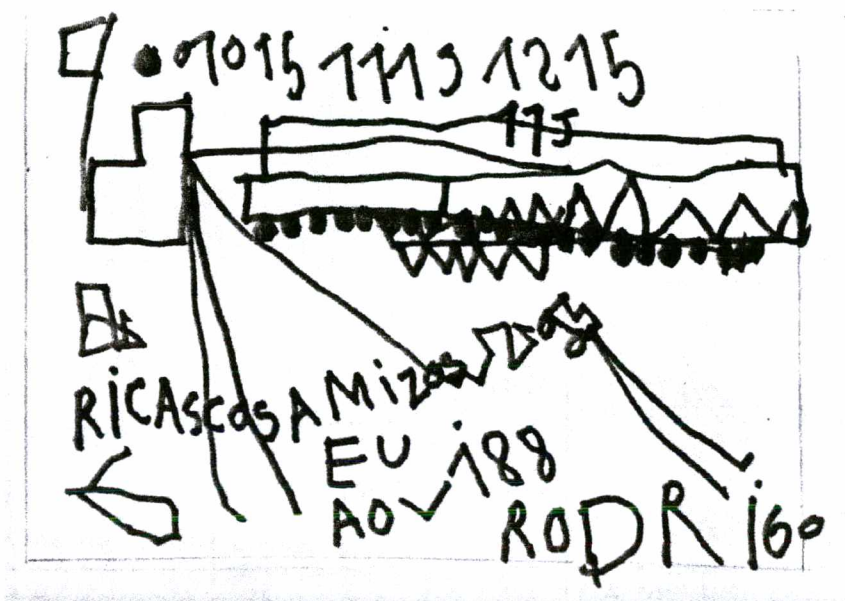 1015 1119 1215
115
RiCAscosAMizos
EU i88
AO
RODRiGo